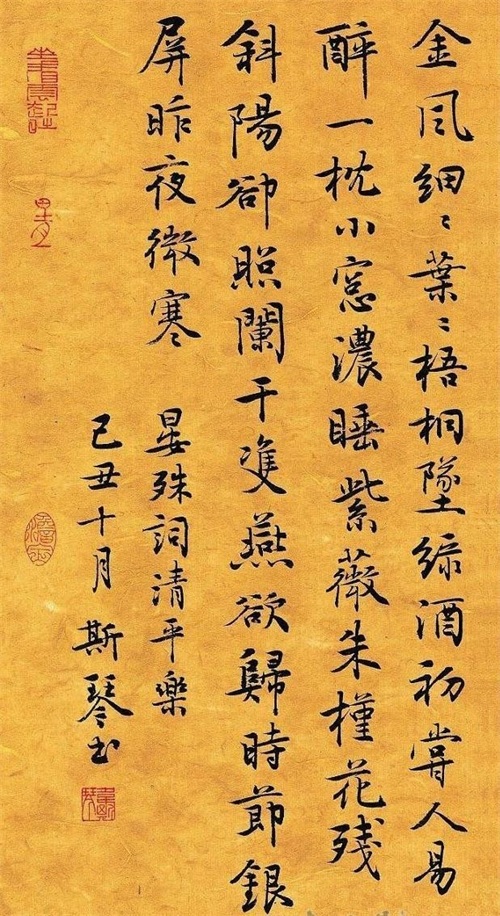 金風細〻葉〻梧桐墜綠酒初嘗人易
醉一枕小窓濃睡紫薇朱槿花残
斜陽卻照闌干雙燕欲歸時節銀
屏昨夜微寒
晏殊詞清平樂
己丑十月斯琴书